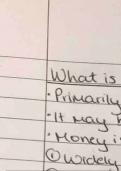 What is
• Primarily
• It may
• Money i
① Widely